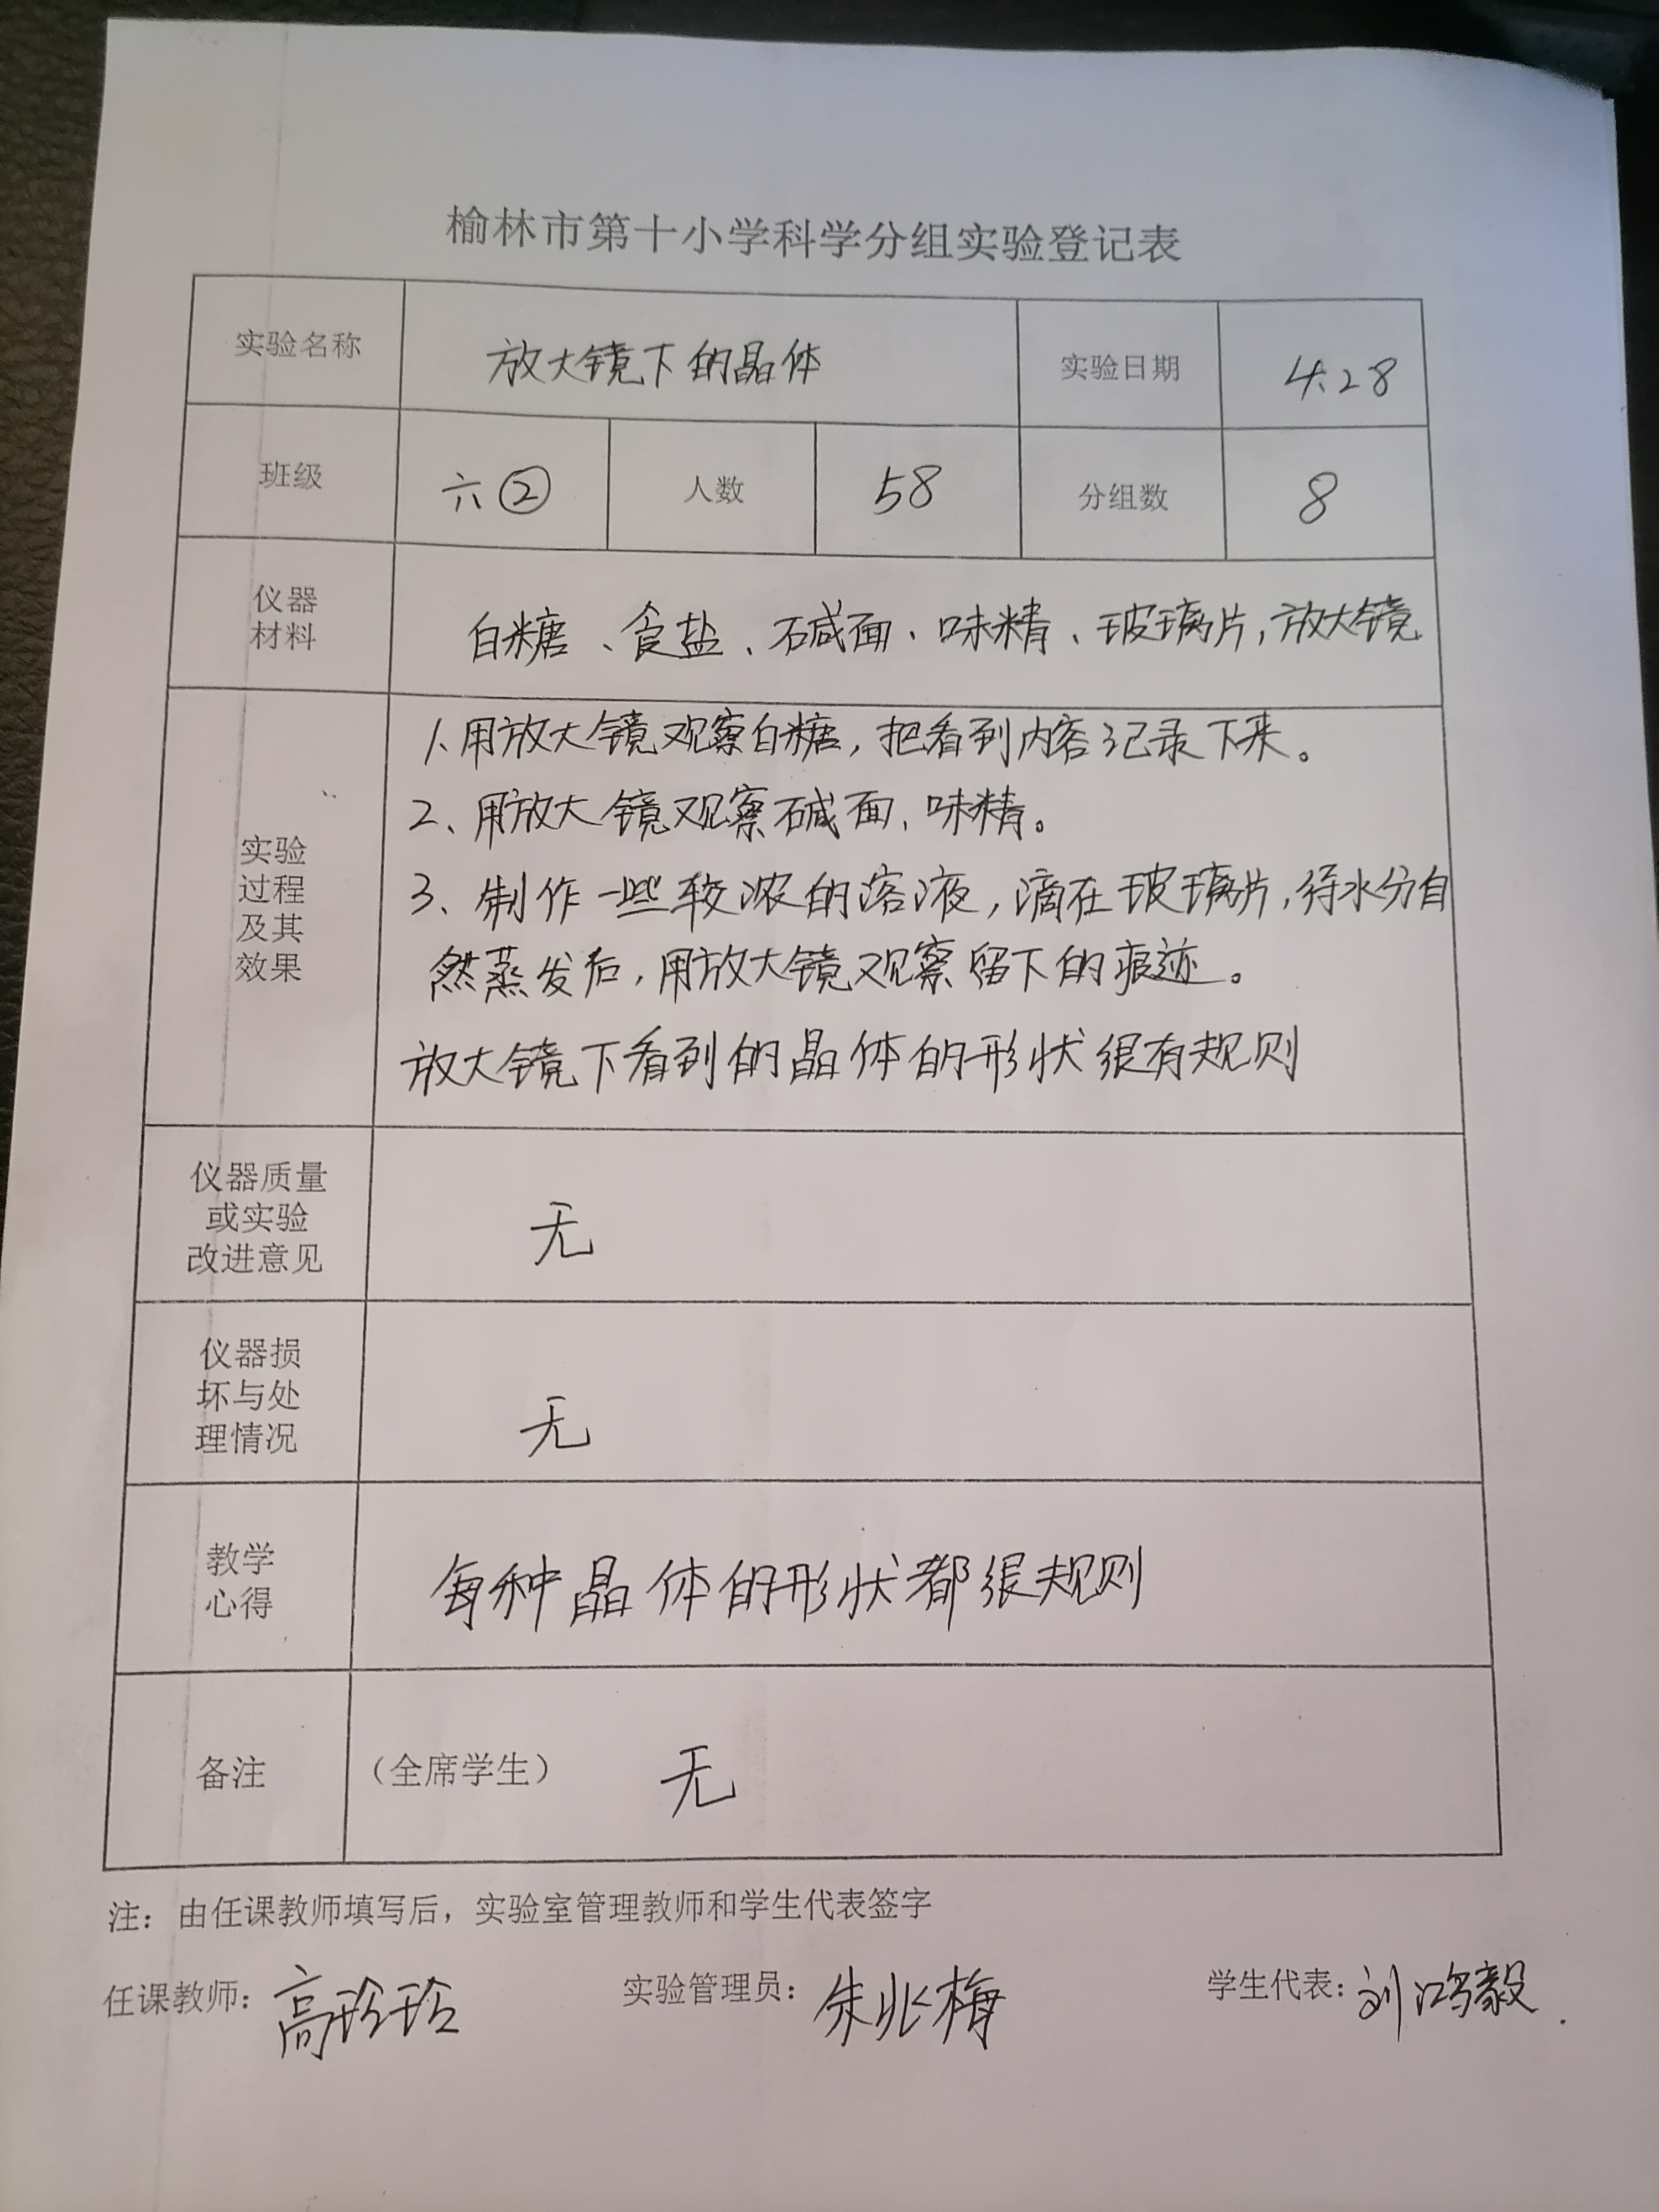 榆林市第十小学科学分组实验登记表
实验名称 放大镜下的晶体 实验日期 4.28
班级 六② 人数 58 分组数 8
仪器
材料
白糖、食盐、碱面、味精、玻璃片,放大镜
实验
过程
及其
效果
1、用放大镜观察白糖,把看到内容记录下来。
2、用放大镜观察碱面、味精。
3、制作一些较浓的溶液,滴在玻璃片,待水分自
然蒸发后,用放大镜观察留下的痕迹。
放大镜下看到的晶体的形状很有规则
仪器质量
或实验
改进意见
无
仪器损
坏与处
理情况
无
教学
心得
每种晶体的形状都很规则
备注 (全席学生) 无
注:由任课教师填写后,实验室管理教师和学生代表签字
任课教师:高玲玲 实验管理员:朱兆梅 学生代表:刘鸿毅